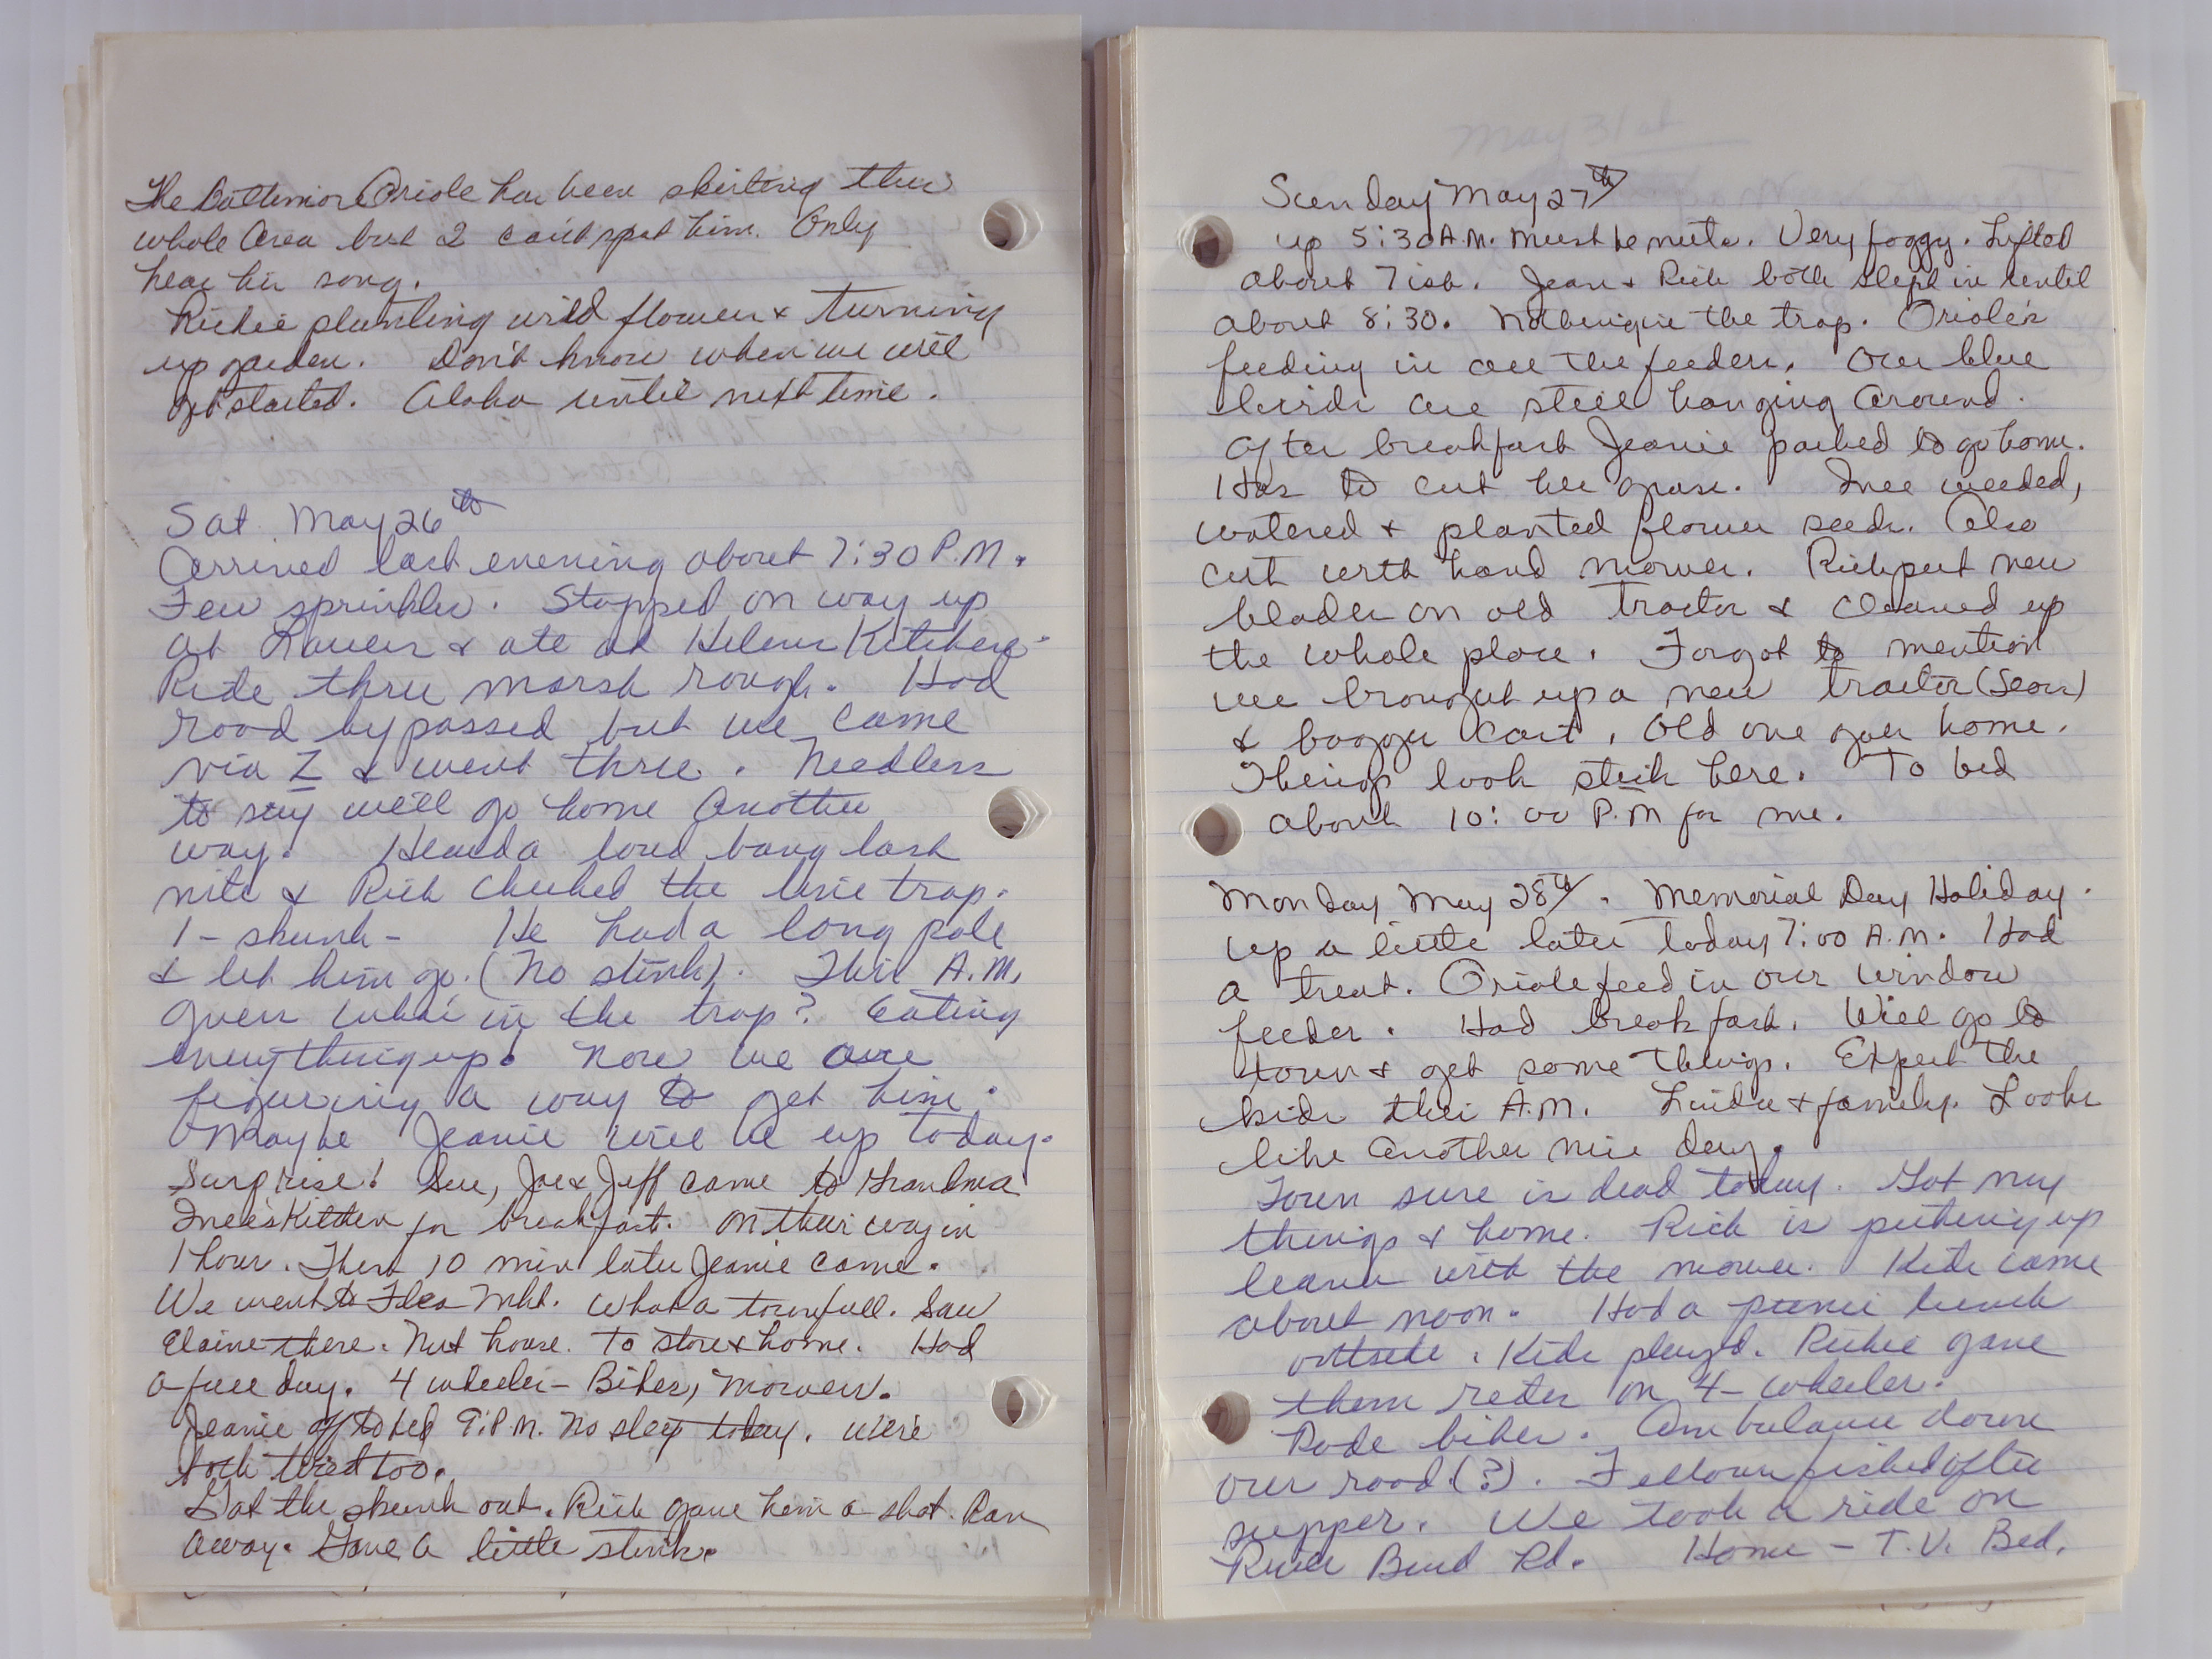 The Baltimore Oriole has been skirting this
whole area but I can't spot him. Only
hear his song.
Richie planting wild flowers & turning
up garden. Don't know when we will
get started. Aloha until next time.
Sat. May 26th
Arrived last evening about 7:30 P.M.
Few sprinkles. Stopped on way up
at & ate at Helens Kitchen.
Ride thru marsh rough. Had
road bypassed but we came
via Z & went thru. Needless
to say we'll go home another
way. Heard a loud bang last
nite & Rich checked the live trap.
1 - skunk - He had a long pole
& let him go. (No stink). This A.M.
guess whats in the trap? Eating
everything up. Now we are
figuring a way to get him.
Maybe Jeanie will be up today.
Surprise! Sue, Joe & Jeff came to Grandma
Inee's Kitchen for breakfast. On their way in
1 hour. Then 10 min later Jeanie came.
We went to Flea Mkt. What a town full. Saw
Elaine there. Nut house. To store & home. Had
a full day. 4 wheeler - Bikes, mowers.
Jeanie off to bed 9: P.M. No sleep today. We're
both tired too.
Got the skunk out. Rich gave him a shot. Ran
away. Gave a little stink.
May 31st
Sunday May 27th
up 5:30 A.M. Must be nuts. Very foggy. Lifted
about 7 ish. Jean & Rich both slept in until
about 8:30. Nothing in the trap. Oriole's
feeding in all the feeders. Our blue
birds are still hanging around.
After breakfast Jeanie packed to go home.
Has to cut her grass. Inee weeded,
watered & planted flower seeds. Also
cut with hand mower. Rich put new
blades on old tractor & cleaned up
the whole place. Forgot to mention
we brought up a new tractor (Sears)
& bagger cart. Old one goes home.
Things look slick here. To bed
about 10:00 P.M for me.
Monday May 28th. Memorial Day Holiday.
up a little later today 7:00 A.M. Had
a treat. Oriole feed in our window
feeder. Had breakfast. Will go to
town & get some things. Expect the
kids this A.M. Linda & family. Looks
like another nice day.
Town sure is dead today. Got my
things & home. Rich is picking up
leaves with the mower. Kids came
about noon. Had a picnic lunch
outside. Kids played. Richie gave
them rides on 4-wheeler.
Rode bikes. Ambulance down
our road (?). Fellows fished after
supper. We took a ride on
River Bend Rd. Home - T.V. Bed.